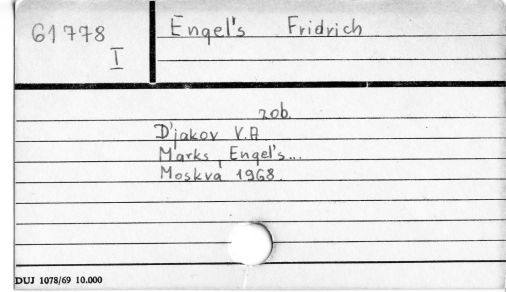 61778
I
Engel's Fridrich
zob.
D'jakov V.A.
Marks, Engel's...
Moskva 1968.
DUJ 1078/69 10.000